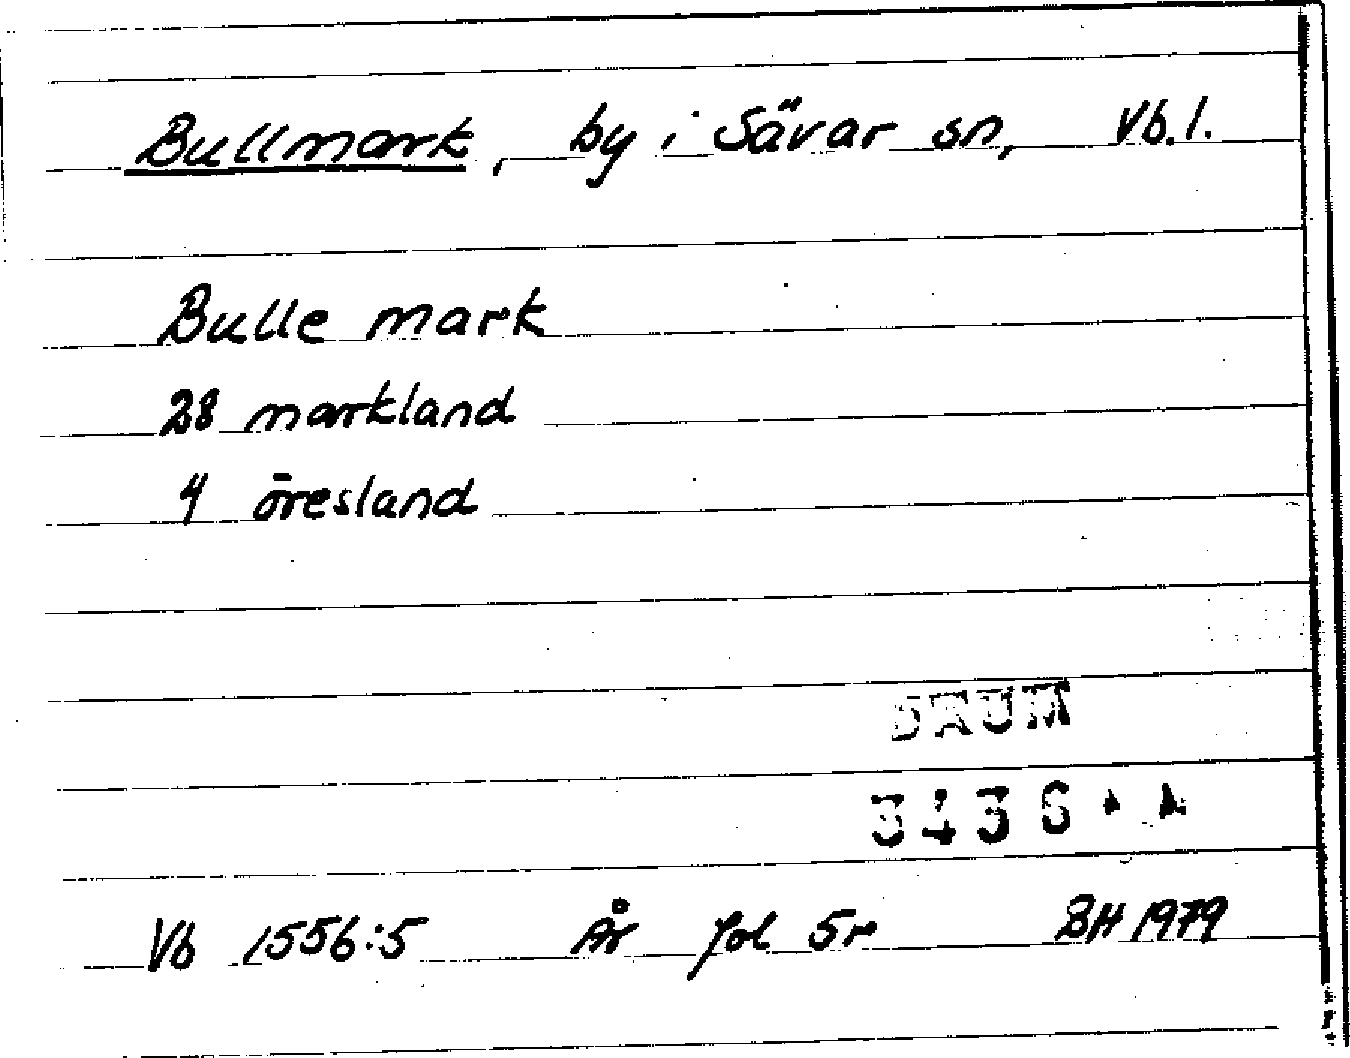 Bullmark, by i Sävar sn, Vb.l.
Bulle mark
28 markland
4 öresland
DAUM
3436
Vb 1556:5 År fol 5r BH 1979